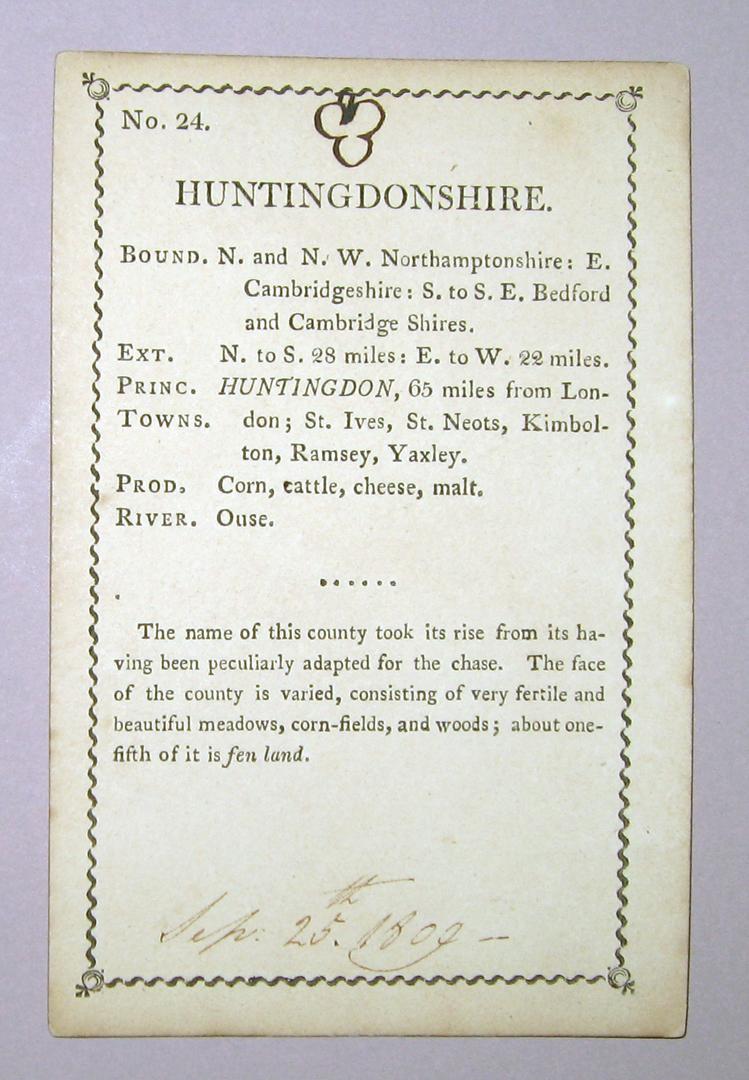 No. 24.
HUNTINGDONSHIRE.
BOUND. N. and N. W. Northamptonshire: E.
Cambridgeshire: S. to S. E. Bedford
and Cambridge Shires.
EXT. N. to S. 28 miles: E. to W. 22 miles.
PRINC. HUNTINGDON, 65 miles from Lon-
TOWNS. don; St. Ives, St. Neots, Kimbol-
ton, Ramsey, Yaxley.
PROD. Corn, cattle, cheese, malt.
RIVER. Ouse.
......
The name of this county took its rise from its ha-
ving been peculiarly adapted for the chase. The face
of the county is varied, consisting of very fertile and
beautiful meadows, corn-fields, and woods; about one-
fifth of it is fen land.
Sep. 25th. 1809 -